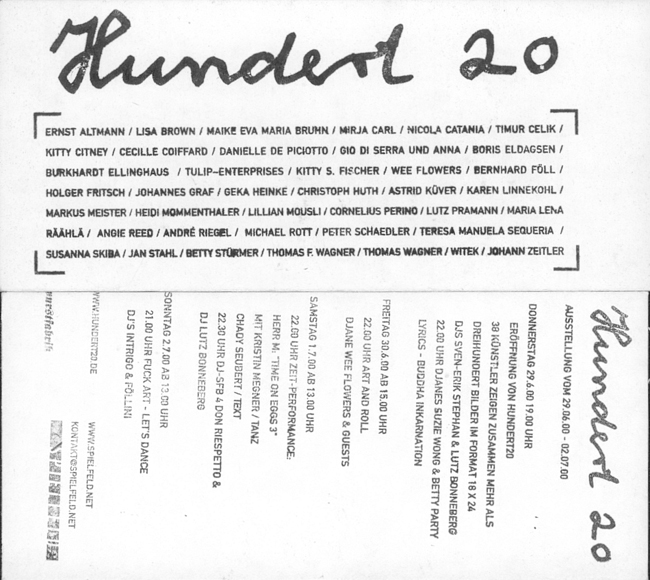 Hundert 20
ERNST ALTMANN / LISA BROWN / MAIKE EVA MARIA BRUHN / MIRJA CARL / NICOLA CATANIA / TIMUR CELIK /
KITTY CITNEY / CECILLE COIFFARD / DANIELLE DE PICIOTTO / GIO DI SERRA UND ANNA / BORIS ELDAGSEN /
BURKHARDT ELLINGHAUS / TULIP-ENTERPRISES / KITTY S. FISCHER / WEE FLOWERS / BERNHARD FÖLL /
HOLGER FRITSCH / JOHANNES GRAF / GEKA HEINKE / CHRISTOPH HUTH / ASTRID KÜVER / KAREN LINNEKOHL /
MARKUS MEISTER / HEIDI MOMMENTHALER / LILLIAN MOUSLI / CORNELIUS PERINO / LUTZ PRAMANN / MARIA LENA
RÄÄHLÄ / ANGIE REED / ANDRÉ RIEGEL / MICHAEL ROTT / PETER SCHAEDLER / TERESA MANUELA SEQUERIA /
SUSANNA SKIBA / JAN STAHL / BETTY STÜRMER / THOMAS F. WAGNER / THOMAS WAGNER / WITEK / JOHANN ZEITLER
Hundert 20
AUSSTELLUNG VOM 29.06.00 - 02.07.00
DONNERSTAG 29.6.00 19.00 UHR
ERÖFFNUNG VON HUNDERT20
38 KÜNSTLER ZEIGEN ZUSAMMEN MEHR ALS
DREIHUNDERT BILDER IM FORMAT 18 X 24
DJS SVEN-ERIK STEPHAN & LUTZ BONNEBERG
22.00 UHR DJANES SUZIE WONG & BETTY PARTY
LYRICS - BUDDHA INKARNATION
FREITAG 30.6.00 AB 15.00 UHR
22.00 UHR ART AND ROLL
DJANE WEE FLOWERS & GUESTS
SAMSTAG 1.7.00 AB 13.00 UHR
22.00 UHR ZEIT-PERFORMANCE:
HERR M: "TIME ON EGGS 3"
MIT KRISTIN MEGNER / TANZ
CHADY SEUBERT / TEXT
22.30 UHR DJ-SFB 4 DON RIESPETTO &
DJ LUTZ BONNEBERG
SONNTAG 2.7.00 AB 13.00 UHR
21.00 UHR FUCK ART - LET'S DANCE
DJ'S INTRIGO & PÖLLINI
WWW.HUNDERT20.DE
WWW.SPIELFELD.NET
KONTAKT@SPIELFELD.NET